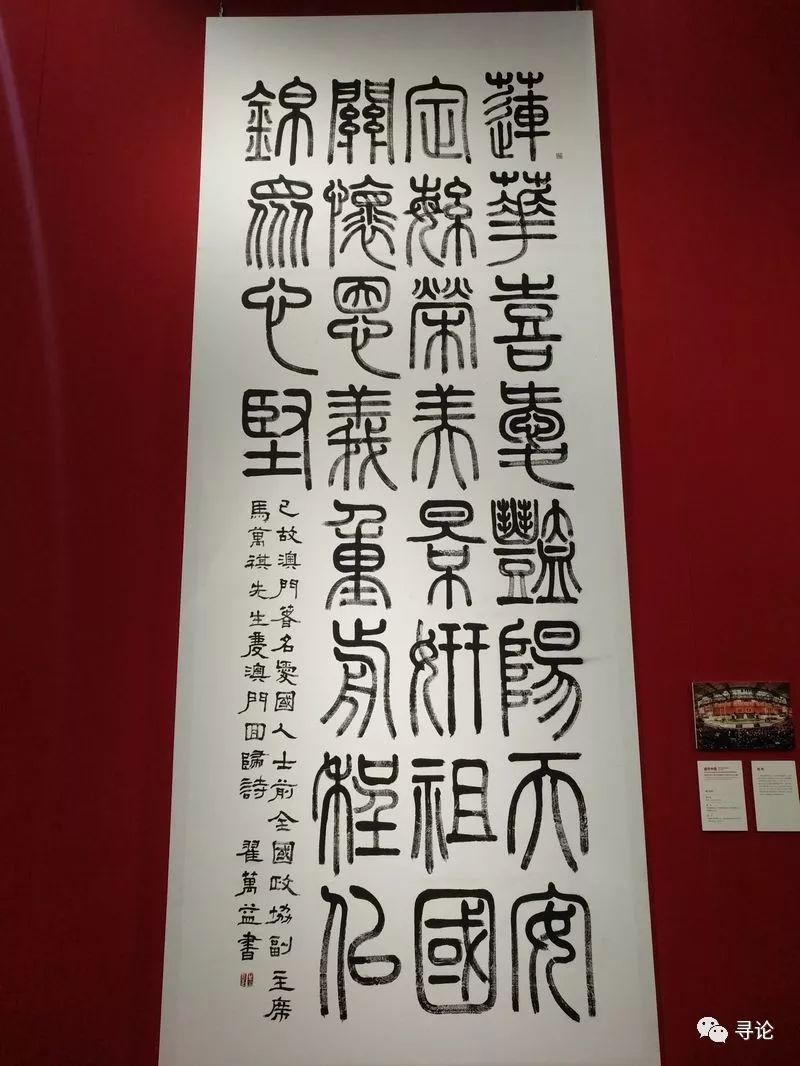 蓮華喜愛豔陽天安
定緐榮美景妍祖國
關懷恩義重前程佀
錦眾心堅
已故澳門著名愛國人士前全國政協副主席
馬萬祺先生慶澳門回歸詩 翟萬益書
寻论